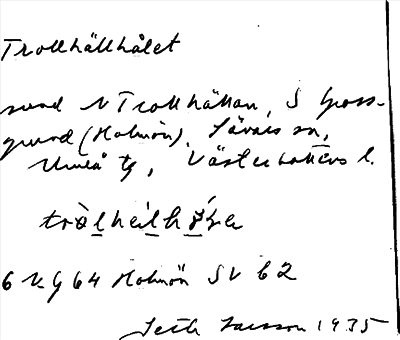 Trollhällhålet
sund N Trollhällan, S
grund (Holmön), Sävars sn,
Umeå tg, Västerbottens l.
6 Kg 64 Holmön SV 62
Seth Larsson 1935